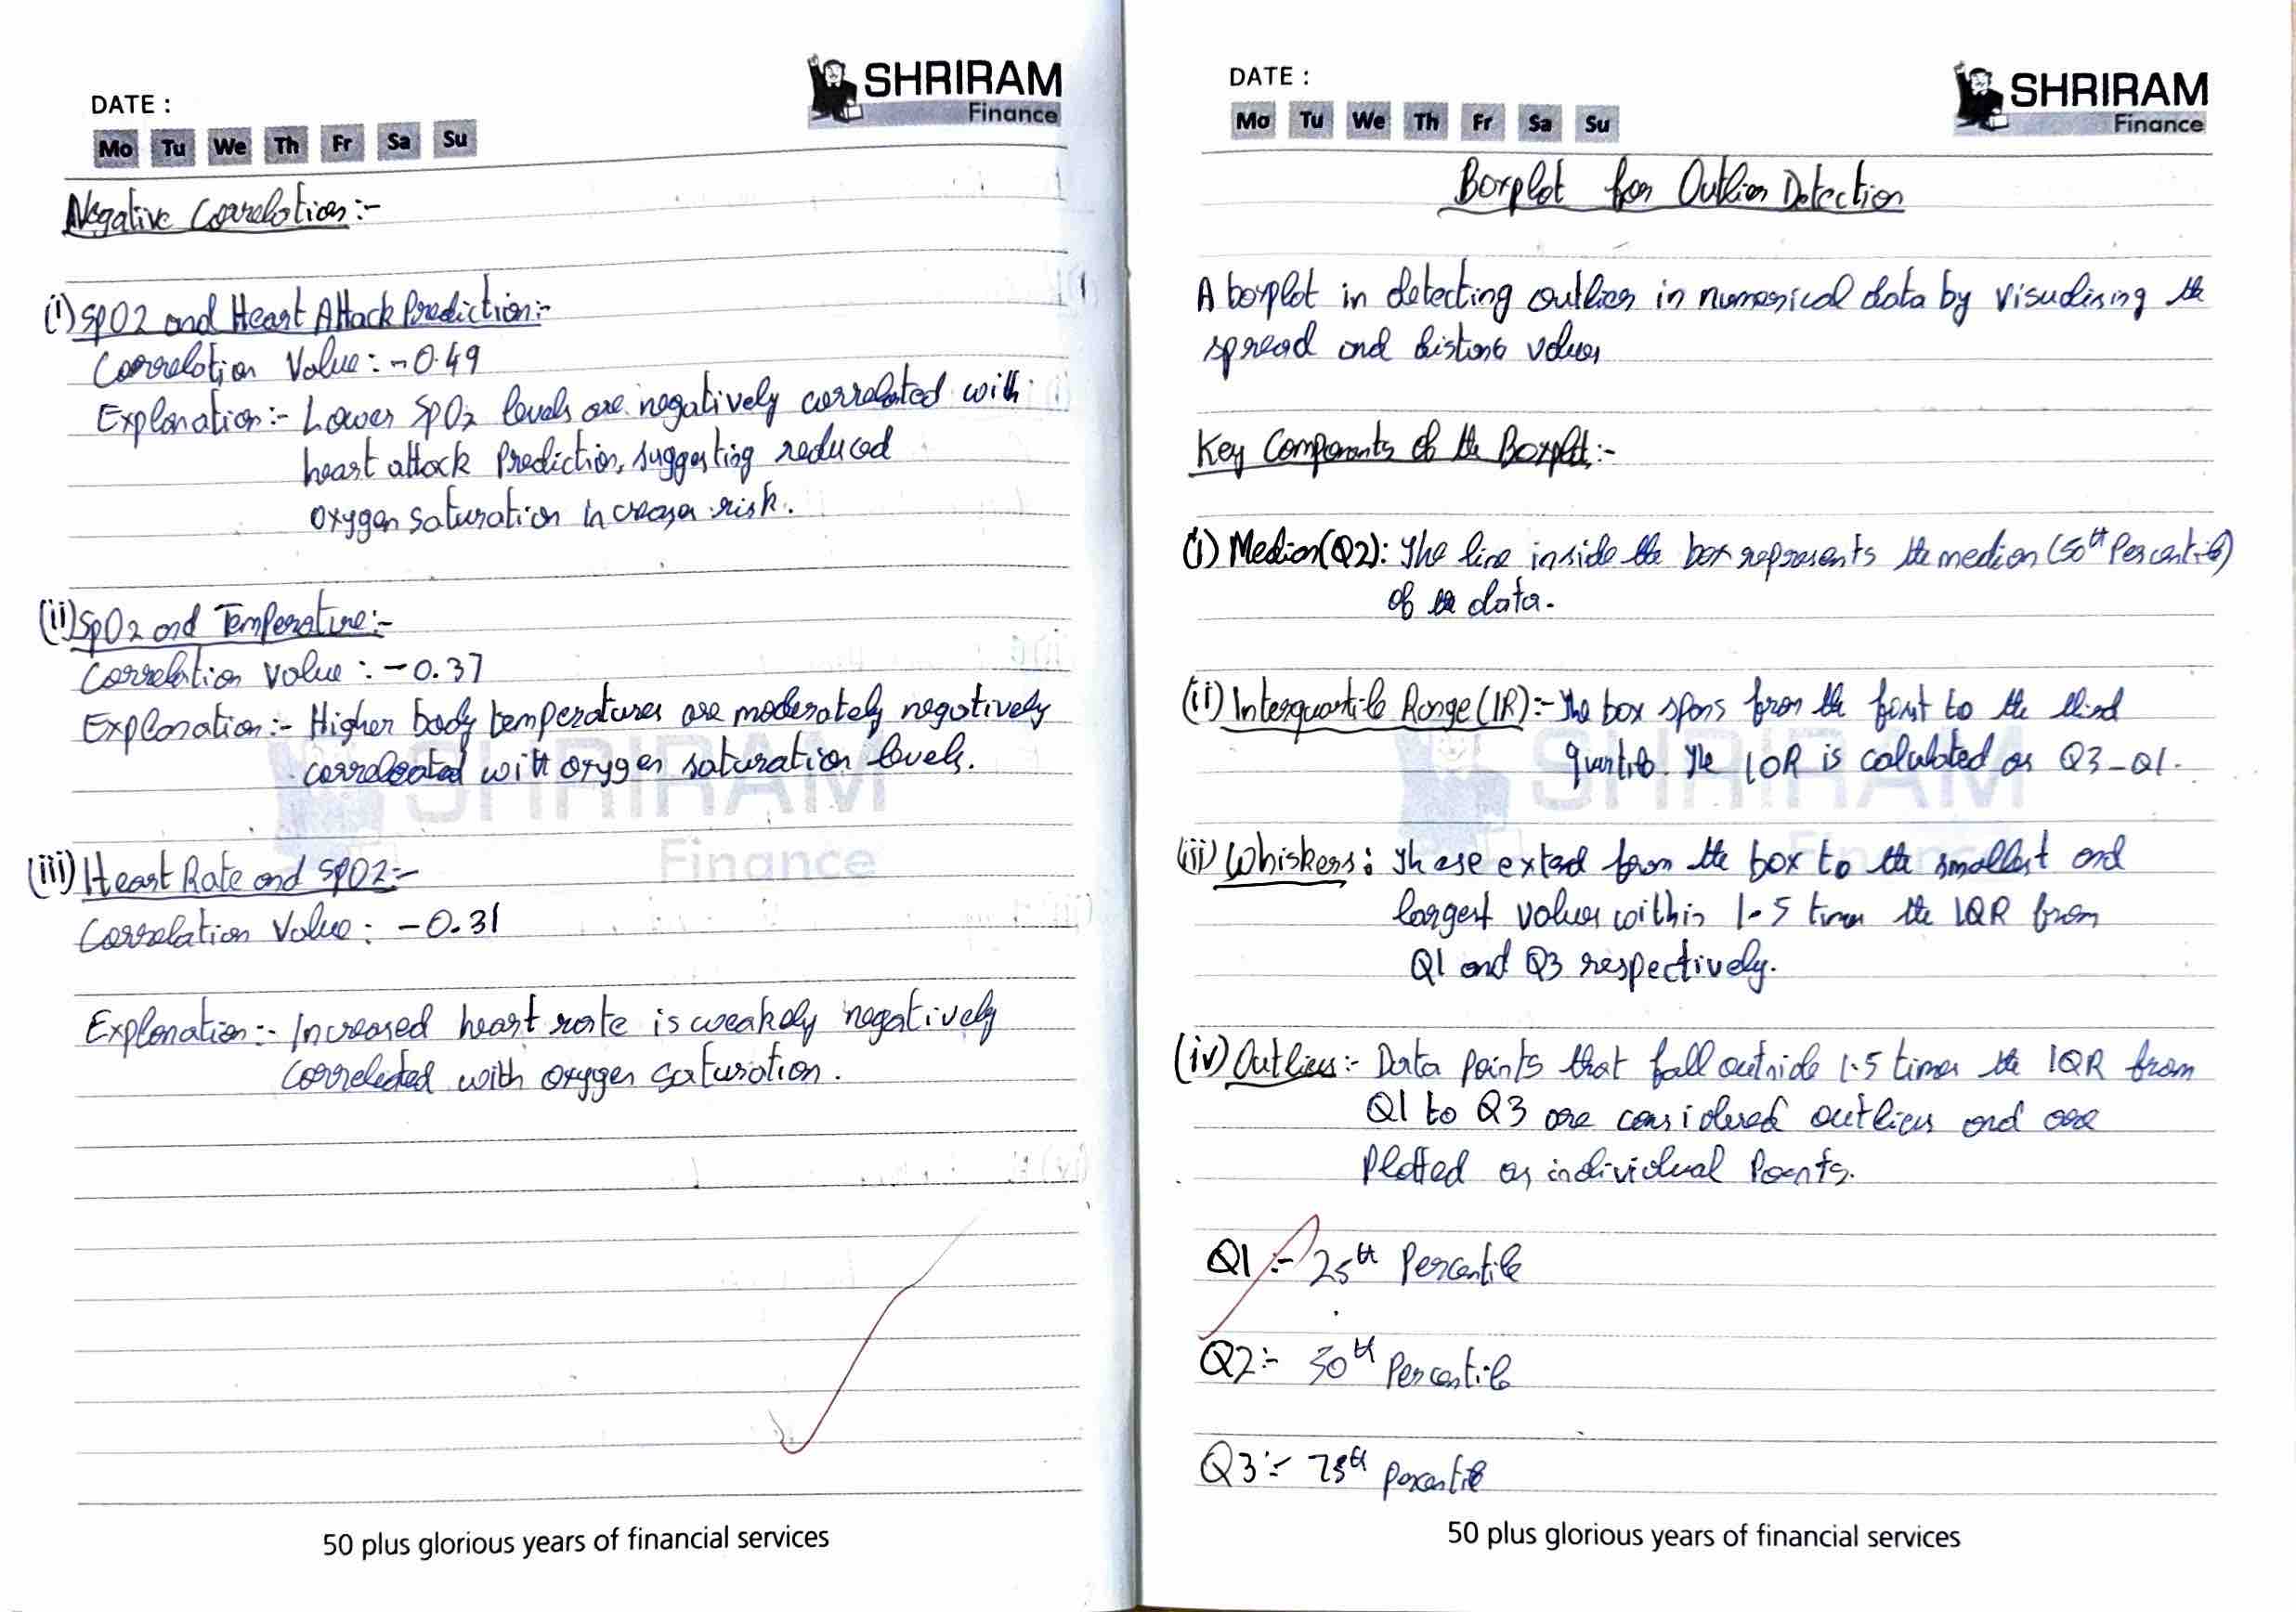 DATE :
SHRIRAM
Finance
Mo Tu We Th Fr Sa Su
Negative Correlation:-
(i) SpO2 and Heart Attack Prediction:-
Correlation Value: -0.49
Explanation:- Lower SpO2 levels are negatively correlated with
heart attack Prediction, suggesting reduced
oxygen saturation increases risk.
(ii) SpO2 and Temperature:-
Correlation Value : -0.37
Explanation:- Higher body temperatures are moderately negatively
correlated with oxygen saturation levels.
(iii) Heart Rate and SPO2:-
Correlation Value: -0.31
Explanation:- Increased heart rate is weakely negatively
correlected with oxygen saturation.
SHRIRAM
Finance
50 plus glorious years of financial services
DATE :
SHRIRAM
Finance
Mo Tu We Th Fr Sa Su
Boxplot for Outlier Detection
A boxplot in detecting outlier in numerical data by visualising the
spread and values
Key Components of the Boxplot:-
(i) Median(Q2): The line inside the box represents the median (50th Percentile)
of the data.
(ii) Interquartile Range (IR):- The box spans from the first to the third
quartile. The IQR is calculated as Q3-Q1.
(iii) Whiskers: These extend from the box to the smallest and
largest values within 1.5 times the IQR from
Q1 and Q3 respectively.
(iv) Outliers:- Data Points that fall outside 1.5 times the IQR from
Q1 to Q3 are considered outliers and are
Plotted as individual Points.
Q1 :- 25th Percentile
Q2:- 50th Percentile
Q3:- 75th percentile
SHRIRAM
Finance
50 plus glorious years of financial services